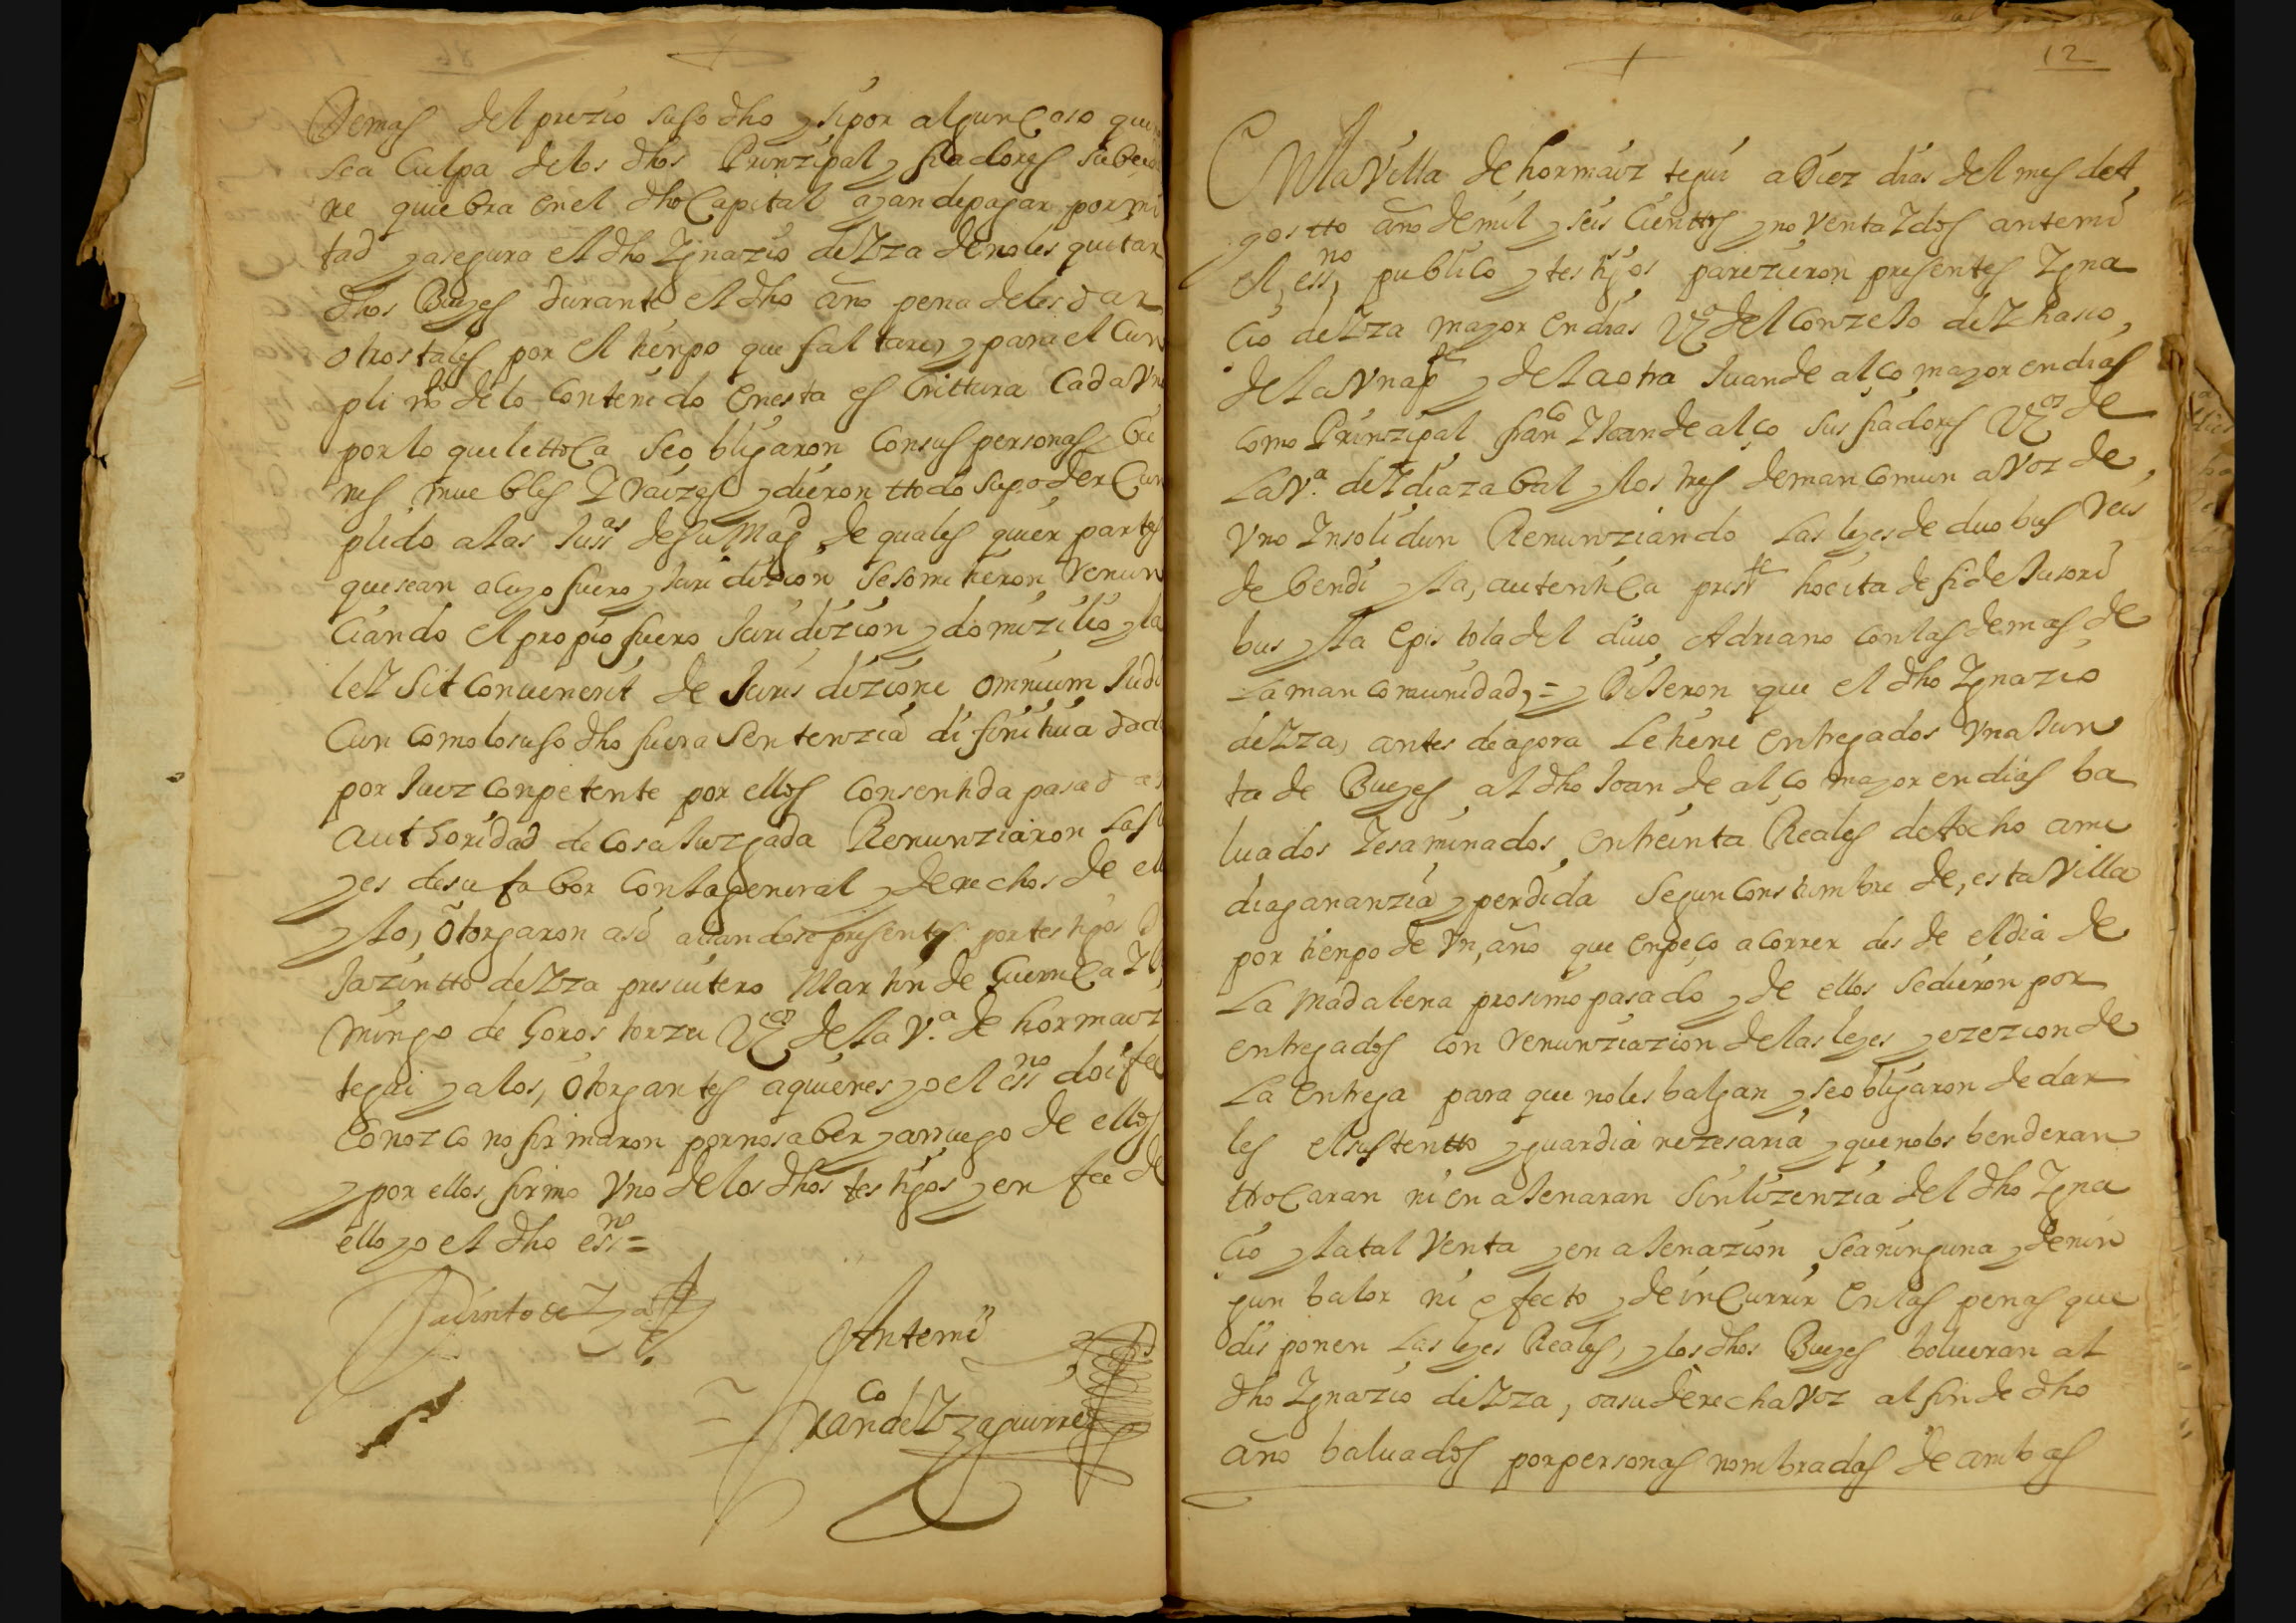 Demas del prezio suso dho y si por algun Caso que
sea Culpa de los dhos Prinzipal y fiadores subçed
re quiebra en el dho Capital ayan de pagar por mi
tad y asegura el dho Ygnazio de Yza de no les quitar
dhos Bueyes durante el dho año pena de les dar
otros tales por el tienpo que faltare, y para el Cun
plimto de lo Contenido en esta escrittura Cada Vno
por lo que le ttoCa se obligaron Con sus personas, bie
nes muebles Y raizes y dieron ttodo su poder Cun
plido a las Jussas de su Magd de quales quier partes
que sean a cuyo fuero y Juridizion se sometieron renun
ciando el propio fuero Juridizion y domizilio y la
leY Sit conuenerit de Juris dizione omnium Judi
Cun como lo suso dho fuera Sentenzia difinitiua dada
por Juez conpetente por ellos consentida pasad a
authoridad de cosa Juzgada Renunziaron las le
yes de su fabor con la general y derechos de ell
y lo, otorgaron asi auandose presentes por testigos D
Jazintto de Yza presuitero Martin de GuerniCa Y Do
mingo de Goros torzu Vzos de la Va. de hormaiz
tegui y a los, otorgantes a quienes yo el essno doi fee
Conozco no firmaron por no saber y a rruego de ellos
y por ellos firmo Vno de los dhos testigos y en fee de
ello yo el dho essno =
Jacinto de Yza
Antemi
franco de Yzaguirre
12
En la Villa de hormaiztegui a Diez dias del mes de A
gostto año de mil y seis Cienttos y noventa Y dos ante mi
el, essno, publico y testigos parezieron presentes Ygna
cio de Yza mayor en dias Vzo del Conzejo de Ythasso,
de la Vna pte y de la otra Juan de alço mayor en dias
como Prinzipal franco Y Juan de alço sus fiadores Vzos de
La Va. de Ydiazabal y los tres de mancomun a Voz de,
Vno Ynsolidun Renunziando las leyes de duobus reis
debendi y la, autentiCa presste hocita de fidejusori
bus y la Epistola del diuo Adriano con las demas de
La mancomunidad, = y Dijeron que el dho Ygnazio
de Yza, antes de agora le tiene entregados Vna Jun
ta de Bueyes al dho Joan de alço mayor en dias ba
luados Y esaminados en treinta Reales de Aocho a me
dia gananzia y perdida segun constumbre de, esta Villa
por tienpo de Vn, año que enpeço a correr des de el dia de
La Madalena prosimo pasado y de ellos se dieron por
entregados con renunziazion de las leyes y ezezion de
La Entrega para que no les balgan y se obligaron de dar
les el sustentto y guardia nezesaria y que no los benderan
ttroCaran ni enajenaran Sin lizenzia del dho Ygna
cio y la tal Venta y enajenazion sea ninguna y de nin
gun balor ni efecto y de inCurrir En las penas que
disponen las leyes Reales, y los dhos Bueyes bolueran al
dho Ygnazio de Yza, o a su derecha Voz al fin de dho
año baluados por personas nombradas de ambas